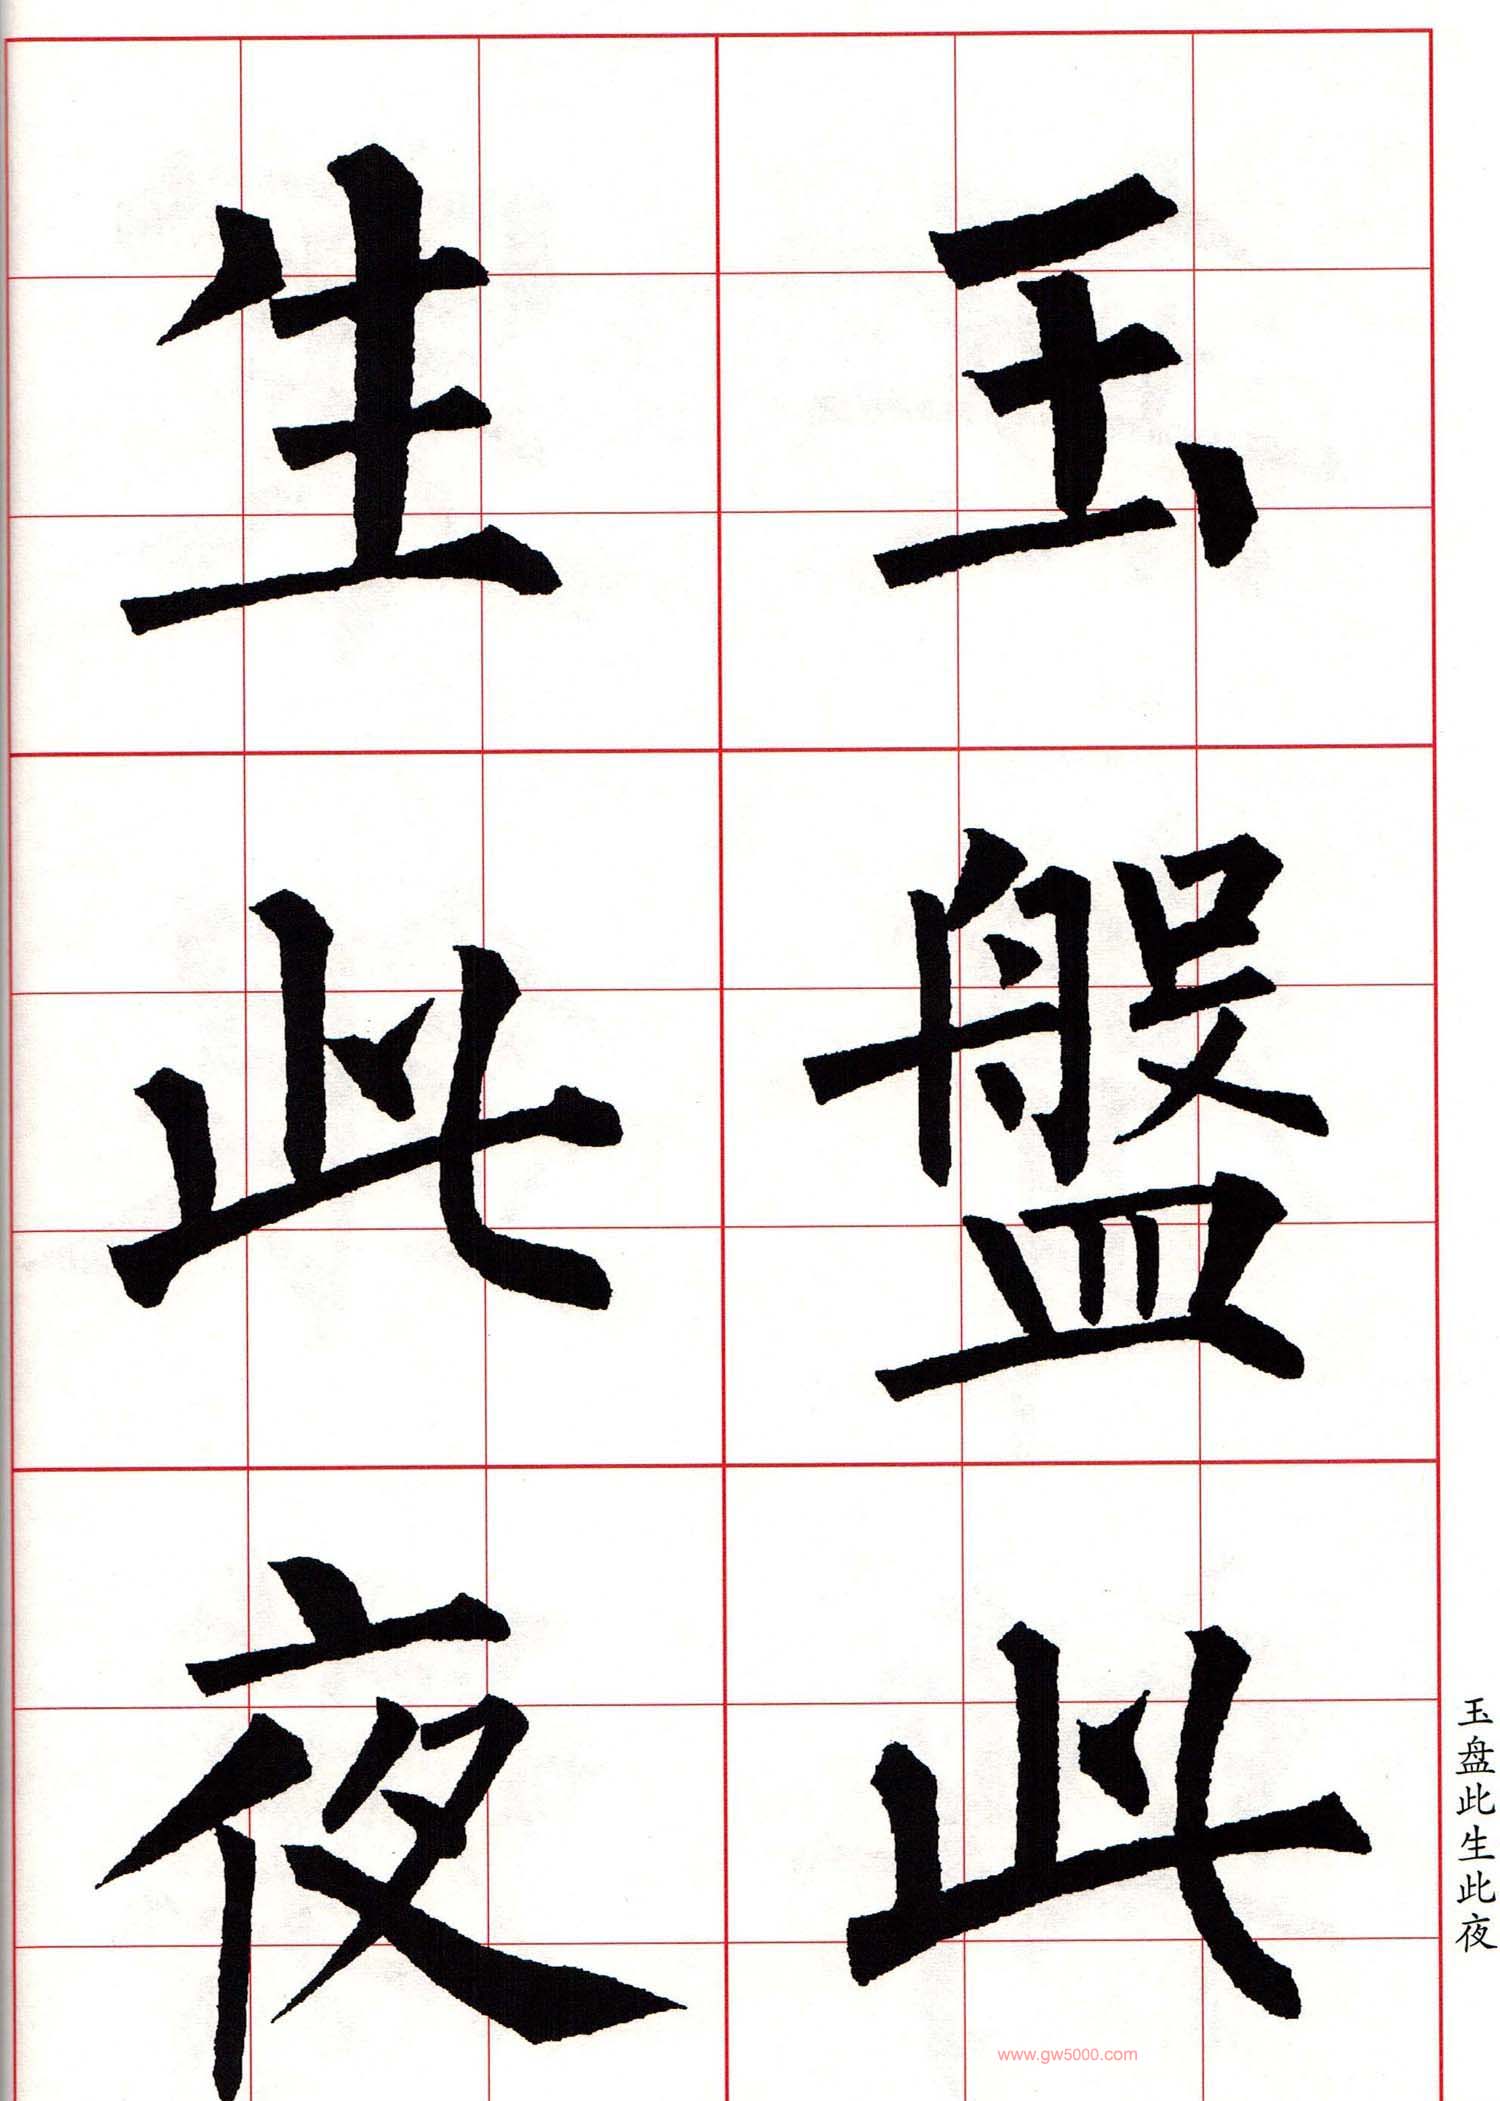 玉盤此
生此夜
玉盘此生此夜
www.gw5000.com